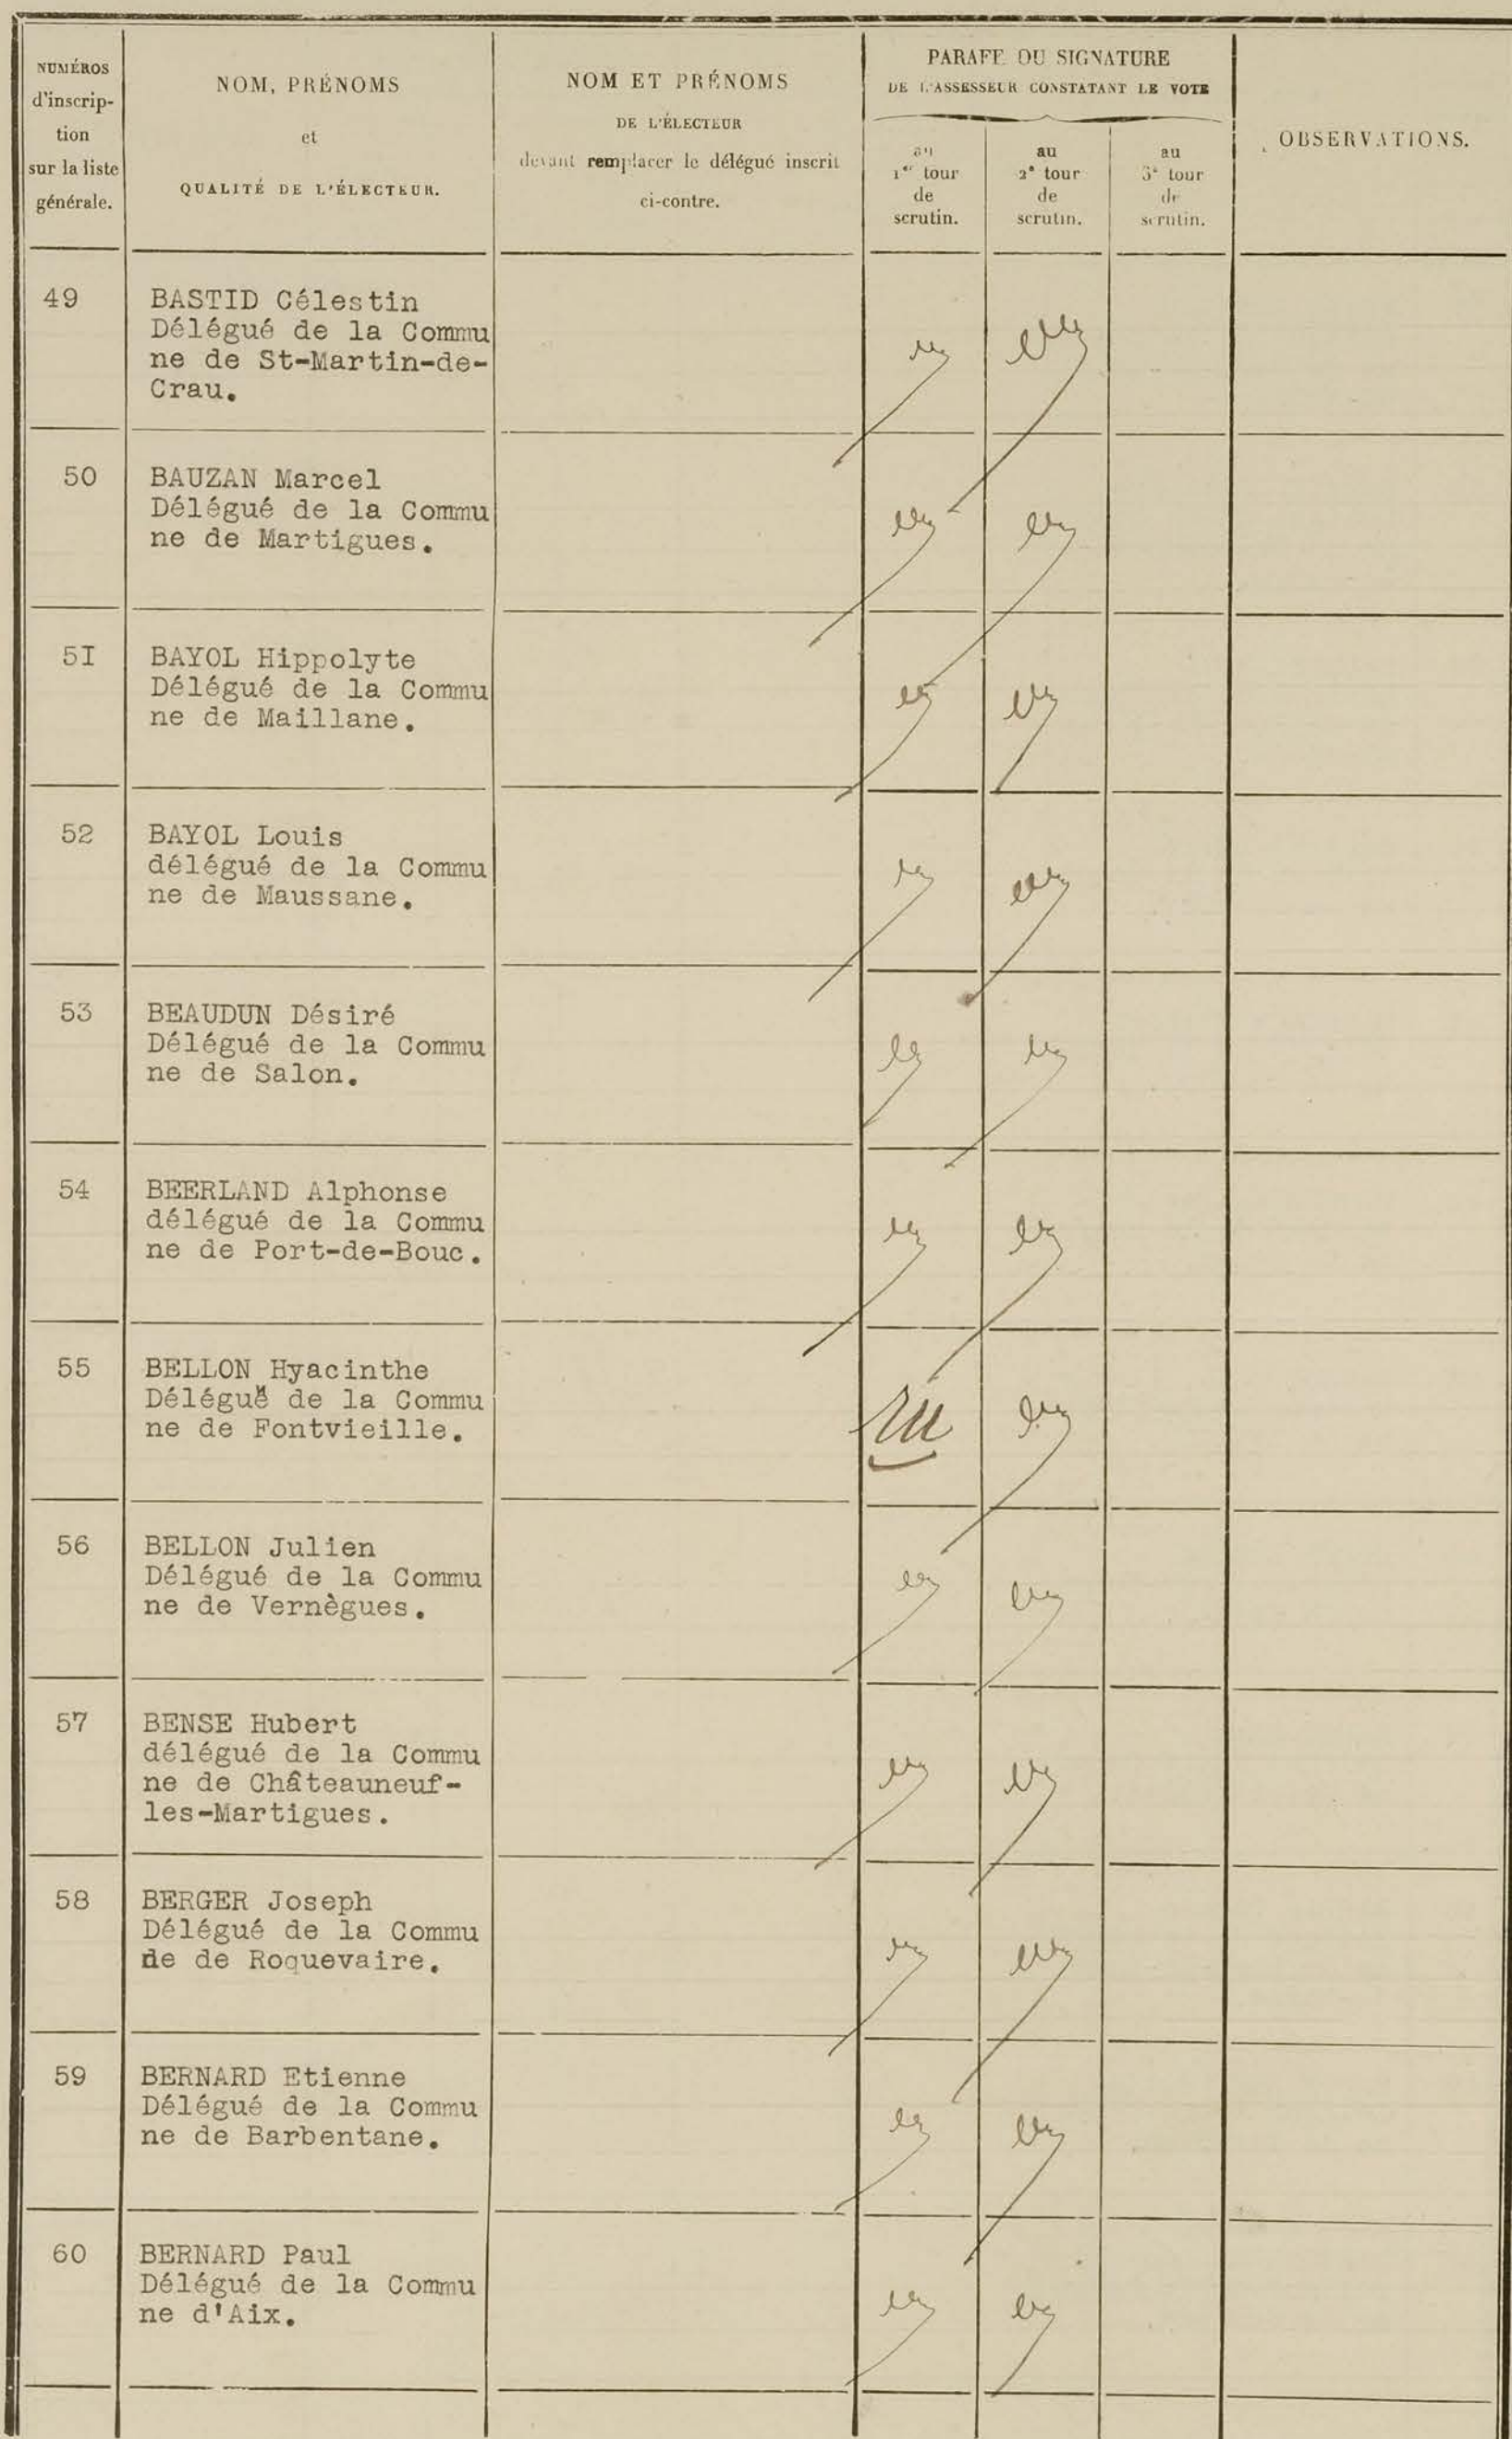 NUMÉROS
d'inscrip-
tion
sur la liste
générale.
NOM, PRÉNOMS
et
QUALITÉ DE L'ÉLECTEUR.
NOM ET PRÉNOMS
DE L'ÉLECTEUR
devant remplacer le délégué inscrit
ci-contre.
PARAFE OU SIGNATURE
DE L'ASSESSEUR CONSTATANT LE VOTE
au
1er tour
de
scrutin.
au
2e tour
de
scrutin.
au
3e tour
de
scrutin.
OBSERVATIONS.
49
BASTID Célestin
Délégué de la Commu
ne de St-Martin-de-
Crau.
50
BAUZAN Marcel
Délégué de la Commu
ne de Martigues.
5I
BAYOL Hippolyte
Délégué de la Commu
ne de Maillane.
52
BAYOL Louis
délégué de la Commu
ne de Maussane.
53
BEAUDUN Désiré
Délégué de la Commu
ne de Salon.
54
BEERLAND Alphonse
délégué de la Commu
ne de Port-de-Bouc.
55
BELLON Hyacinthe
Délégué de la Commu
ne de Fontvieille.
56
BELLON Julien
Délégué de la Commu
ne de Vernègues.
57
BENSE Hubert
délégué de la Commu
ne de Châteauneuf-
les-Martigues.
58
BERGER Joseph
Délégué de la Commu
ne de Roquevaire.
59
BERNARD Etienne
Délégué de la Commu
ne de Barbentane.
60
BERNARD Paul
Délégué de la Commu
ne d'Aix.